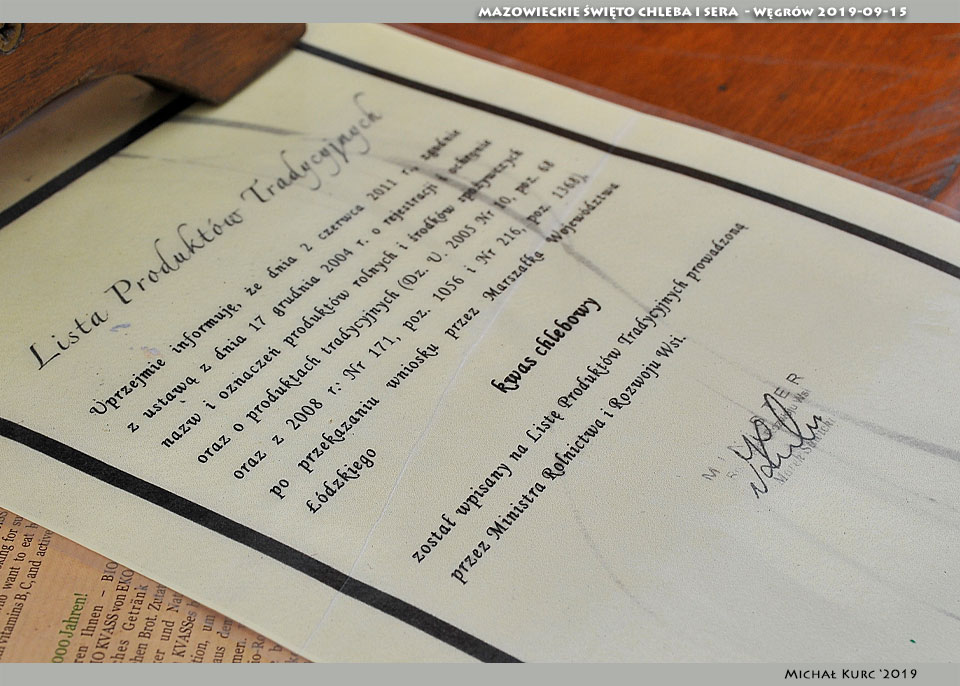 MAZOWIECKIE ŚWIĘTO CHLEBA I SERA - WĘGRÓW 2019-09-15
Lista Produktów Tradycyjnych
Uprzejmie informuję, że dnia 2 czerwca 2011 r., zgodnie
z ustawą z dnia 17 grudnia 2004 r. o rejestracji i ochronie
nazw i oznaczeń produktów rolnych i środków spożywczych
oraz o produktach tradycyjnych (Dz. U. 2005 Nr 10, poz. 68
oraz z 2008 r. Nr 171, poz. 1056 i Nr 216, poz. 1368),
po przekazaniu wniosku przez Marszałka Województwa
Łódzkiego
kwas chlebowy
został wpisany na Listę Produktów Tradycyjnych prowadzoną
przez Ministra Rolnictwa i Rozwoju Wsi.
who want to eat
vitamins B, C, and active
000 Jahren!
ren Ihnen – BIO
IO KVASS von EKO
ches Getränk
chen Brot. Zutat
er und Nat
KVASSes
tion, um
aus dem
men.
MICHAŁ KURC '2019